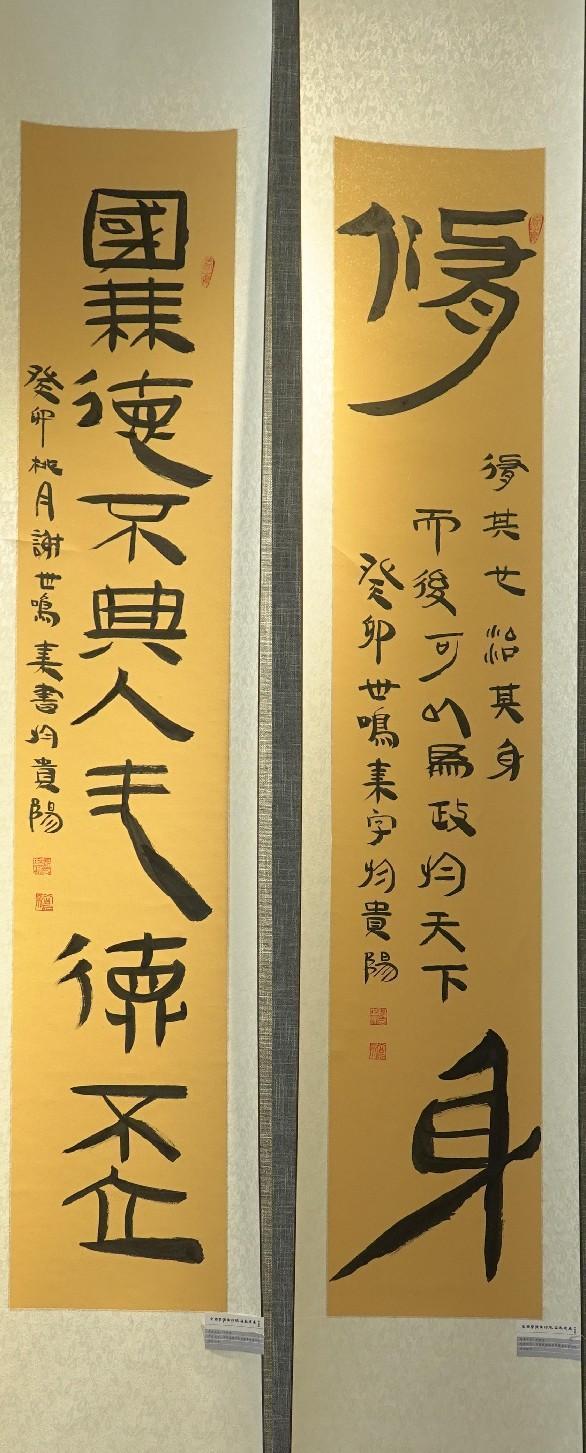 修身
修其心治其身
而後可以為政於天下
癸卯世鳴隶字於貴陽
國無德不興人無德不立
癸卯桃月謝世鳴隶書於貴陽